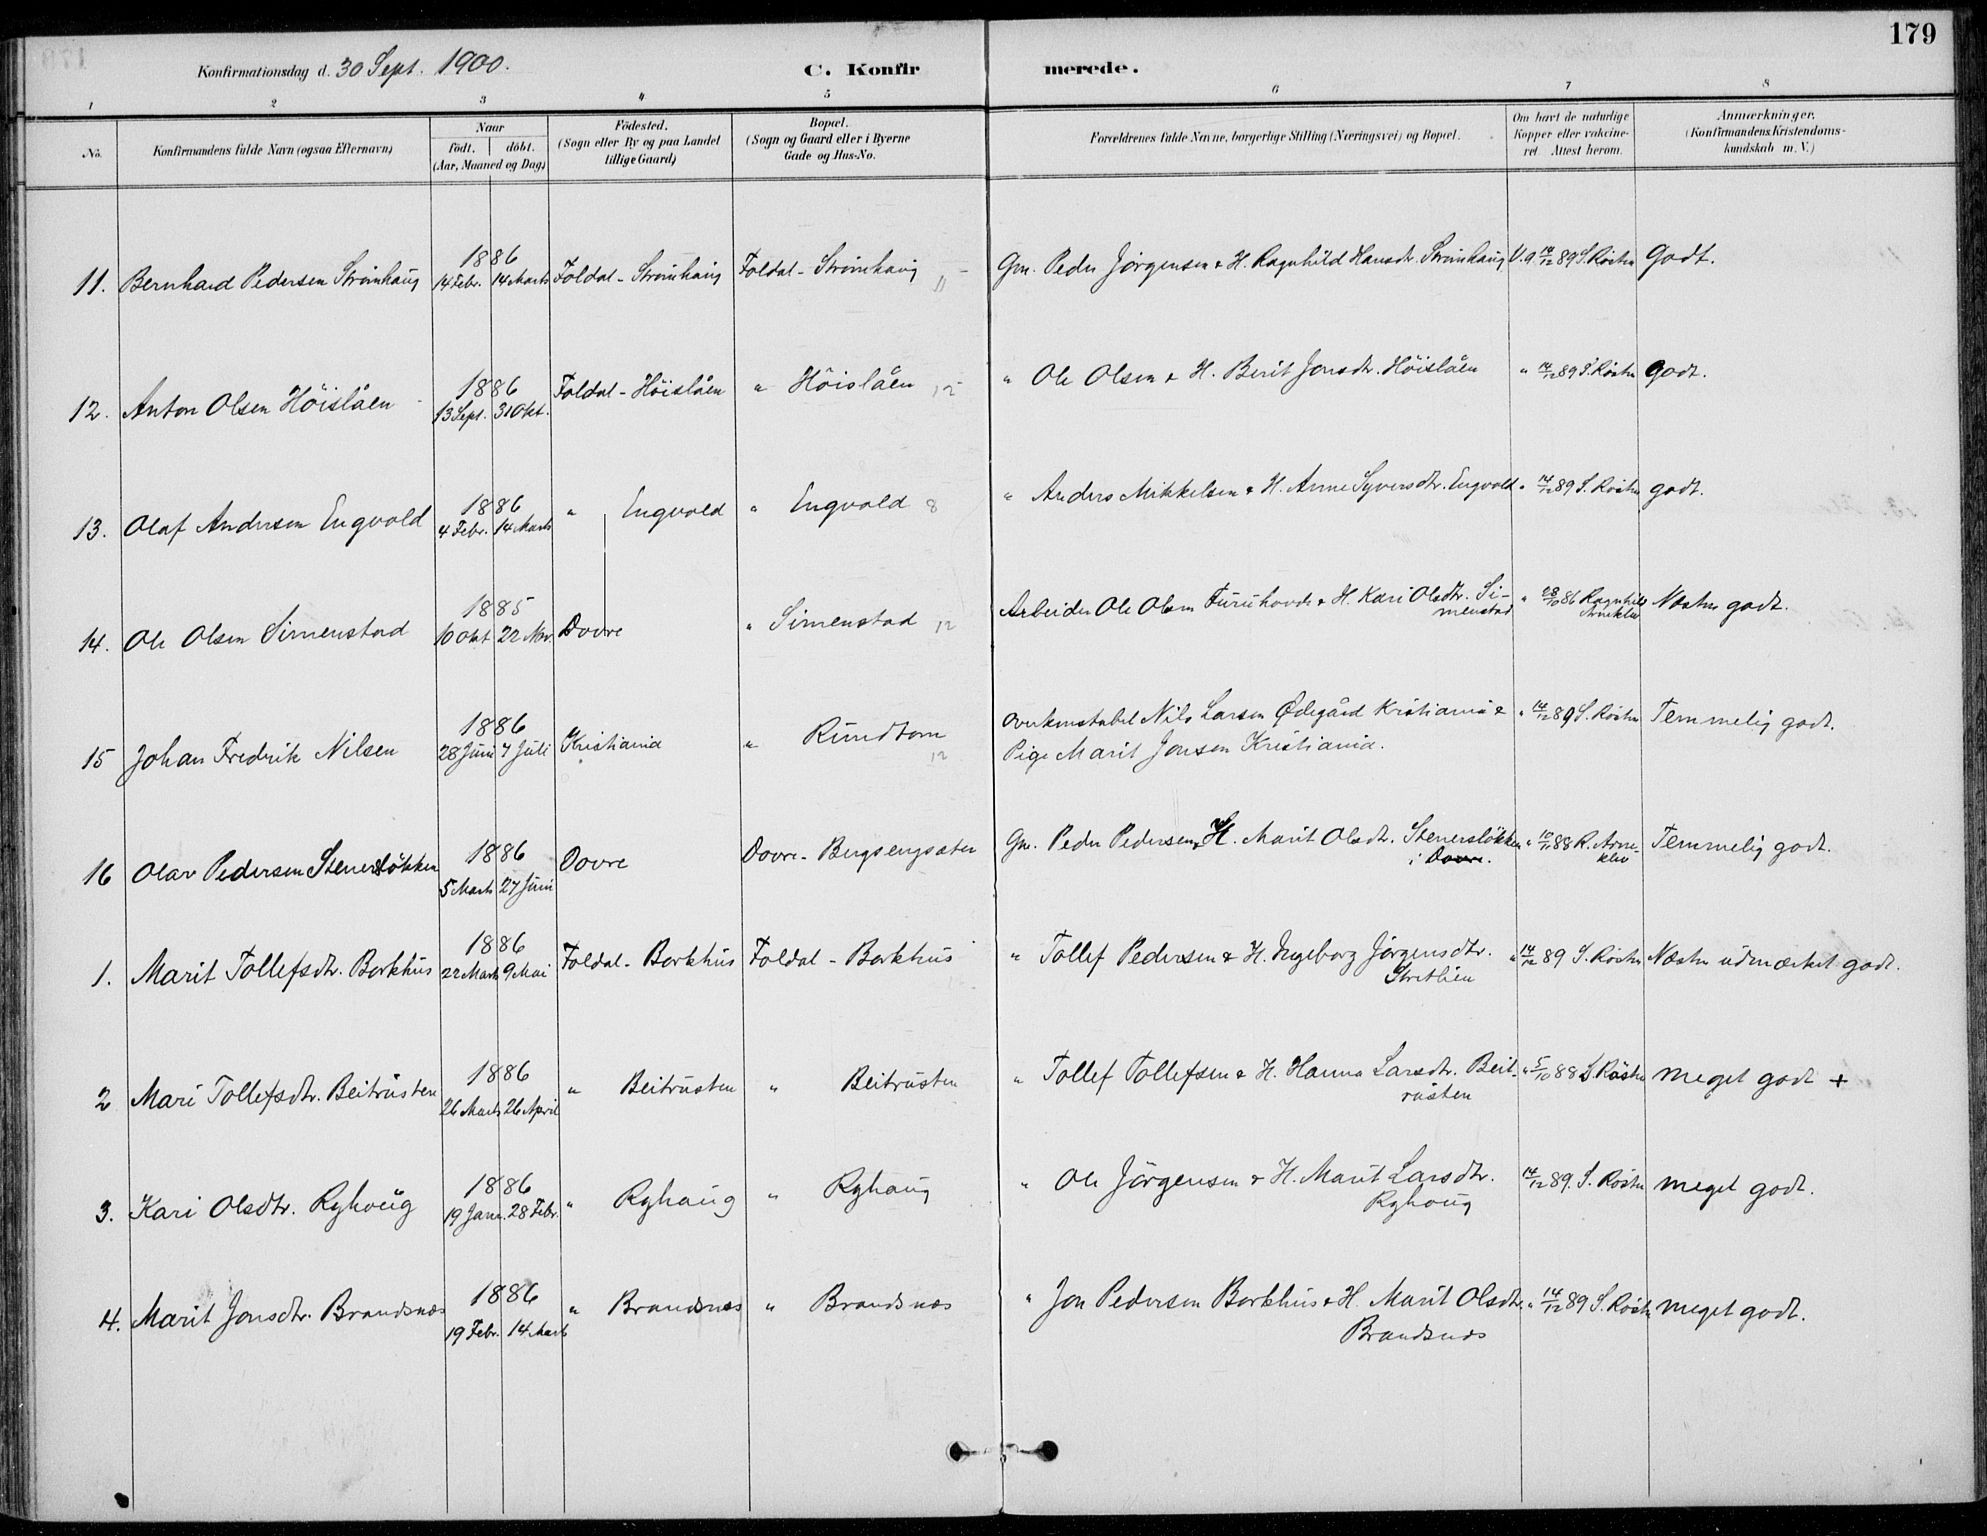 179
Konfirmationsdag d. 30 Sept. 1900. C. Konfirmerede.
1 2 3 4 5 6 7 8
No. Konfirmandens fulde Navn (ogsaa Efternavn) Naar födt. döbt. (Aar, Maaned og Dag) Födested. (Sogn eller By og paa Landet tillige Gaard) Bopæl. (Sogn og Gaard eller i Byerne Gade og Hus-No. Forældrenes fulde Navne, borgerlige Stilling (Næringsvei) og Bopæl. Om havt de naturlige Kopper eller vakcineret. Attest herom. Anmærkninger. (Konfirmandens Kristendomskundskab m. V.)
11. Bernhard Pedersen Strömhaug 1886 14 Febr. 14 Marts Foldal - Strömhaug Foldal - Strömhaug 11 Gm. Peder Jörgensen & H. Ragnhild Hansdr. Strömhaug V.a. 14/12 89 S. Röstn Godt.
12. Anton Olsen Höislåen 1886 13 Sept. 31 Okt. Foldal - Höislåen " Höislåen 12 " Ole Olsen & H. Berit Jonsdr. Höislåen " 14/12 89 S. Röstn godt.
13. Olaf Andersen Engvold 1886 4 Febr. 14 Marts " Engvold " Engvold 8 " Anders Mikkelsen & H. Anne Syversdtr. Engvold " 14/12 89 S. Röstn godt.
14. Ole Olsen Simenstad 1885 10 Okt 22 Nov. Dovre " Simenstad 12 Arbeider Ole Olsen Furuhovde & H. Kari Olsdtr. Si-
menstad " 28/10 86 Ragnhild Arneklev Næsten godt.
15 Johan Fredrik Nilsen 1886 28 Juni 7 Juli Kristiania " Rundtom 12 overkonstabel Nils Larsen Ødegård Kristiania &
Pige Marit Jonsen Kristiania. " 14/12 89 S. Röstn Temmelig godt.
16 Olav Pedersen Stenerslökken 1886 5 Marts 27 Juni Dovre Dovre - Bergsengsæter Gm. Peder Pedersen & H. Marit Olsdtr. Stenerslökken
i Dovre. " 10/11 88 R. Arne-
klev Temmelig godt.
1. Marit Tollefsdtr. Borkhus 1886 22 Marts 9 Mai Foldal - Borkhus Foldal - Borkhus " Tollef Pedersen & H. Ingeborg Jörgensdtr.
Stretlien " 14/12 89 S. Röstn Næsten udmærket godt.
2 Mari Tollefsdtr. Beitrusten 1886 26 Marts 26 April " Beitrusten " Beitrusten " Tollef Tollefsen & H. Hanna Larsdtr. Beit-
rusten " 5/10 88 S. Röstn meget godt +
3. Kari Olsdtr. Ryhoug 1886 19 Janr. 28 Febr. " Ryhaug " Ryhaug " Ole Jörgensen & H. Marit Larsdtr.
Ryhoug 14/12 89. S. Röstn meget godt.
4. Marit Jonsdtr. Brandsnæs 1886 19 Febr. 14 Marts " Brandsnæs " Brandsnæs " Jon Pedersen Borkhus & H. Marit Olsdtr.
Brandsnæs " 14/12 89 S. Röstn meget godt.